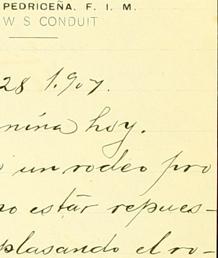 PEDRICEÑA. F. I. M.
W S CONDUIT
28 1.907.
niña hoy.
un rodeo pro
no estar repues-
plasando el ro-